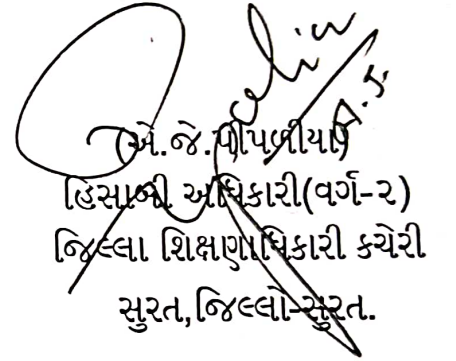 (એ.જે.પીપળીયા)
હિસાબી અધિકારી(વર્ગ-૨)
જિલ્લા શિક્ષણાધિકારી કચેરી
સુરત,જિલ્લો-સુરત.